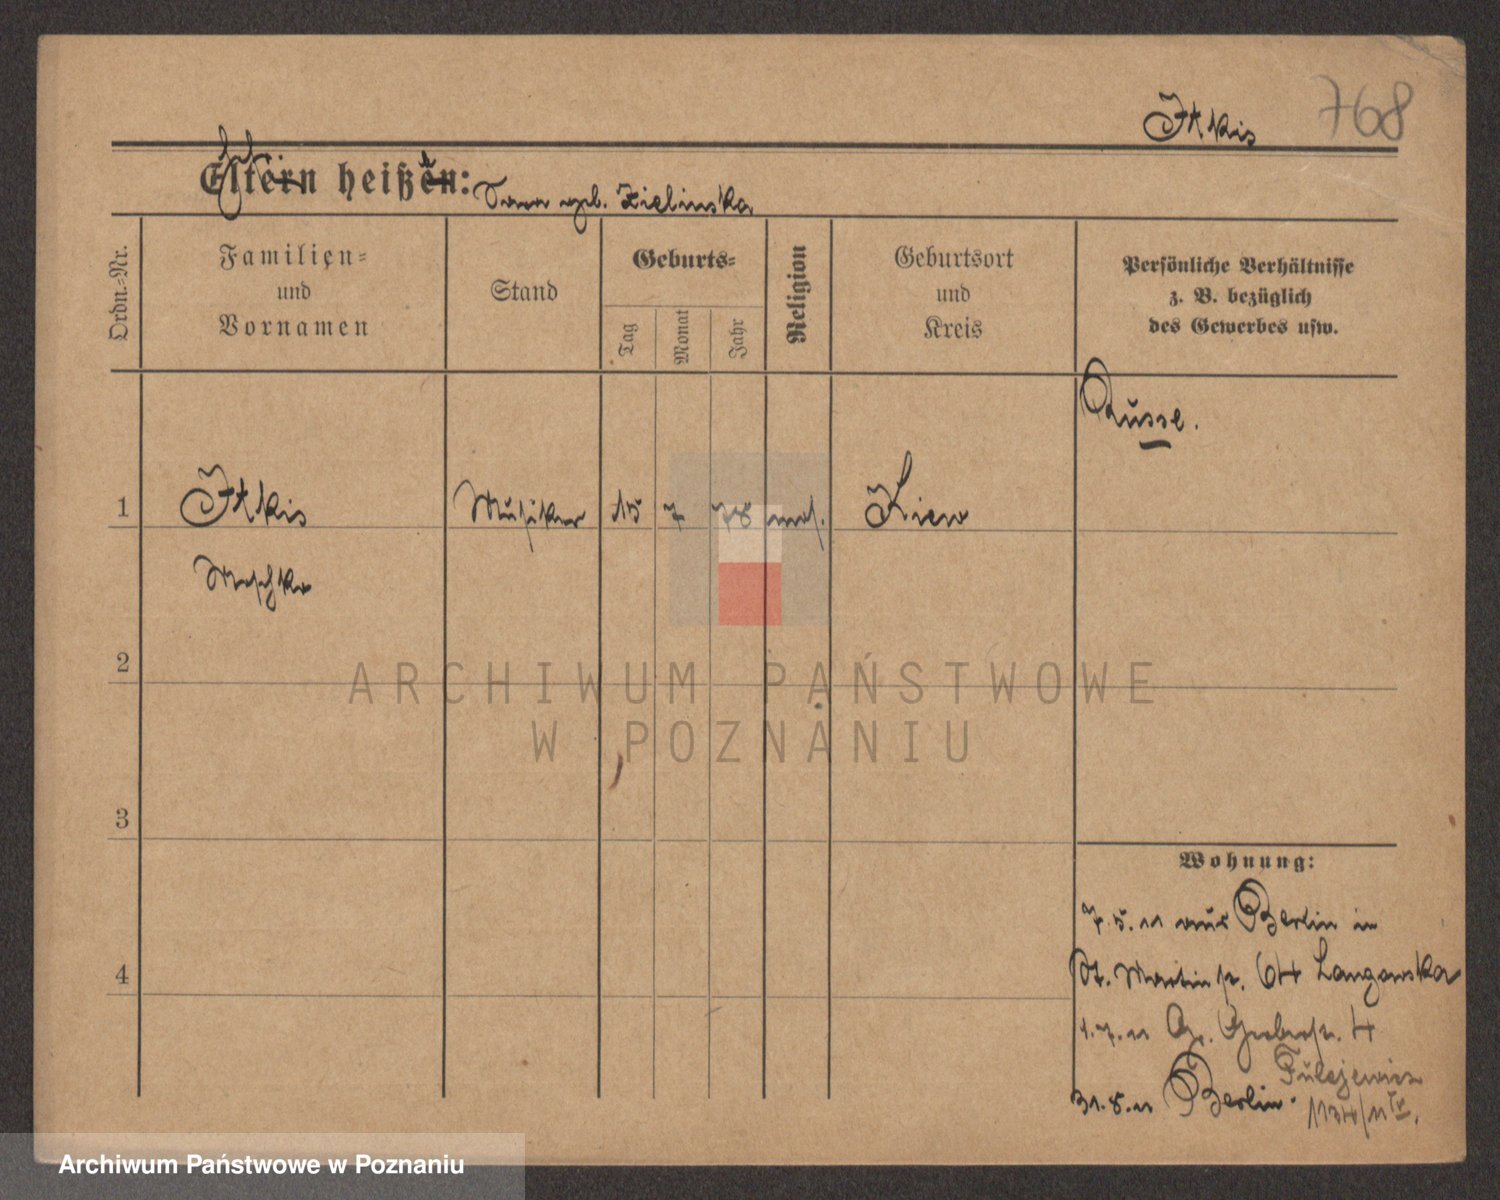 Itkis 768
Eltern heißen: Sara geb. Zielinska
Ordn.-Nr.
Familien-
und
Vornamen
Stand
Geburts-
Tag
Monat
Jahr
Religion
Geburtsort
und
Kreis
Persönliche Verhältnisse
z. B. bezüglich
des Gewerbes usw.
Russe.
1 Itkis Musiker 15 7 78 mos. Kiew
2
3
4
Wohnung:
7.5.11 aus Berlin in
St. Martinstr. 64 Langanska
1.7.11 Gr. Gerberstr. 4
31.8.11 Berlin.
ARCHIWUM PAŃSTWOWE
W POZNANIU
Archiwum Państwowe w Poznaniu